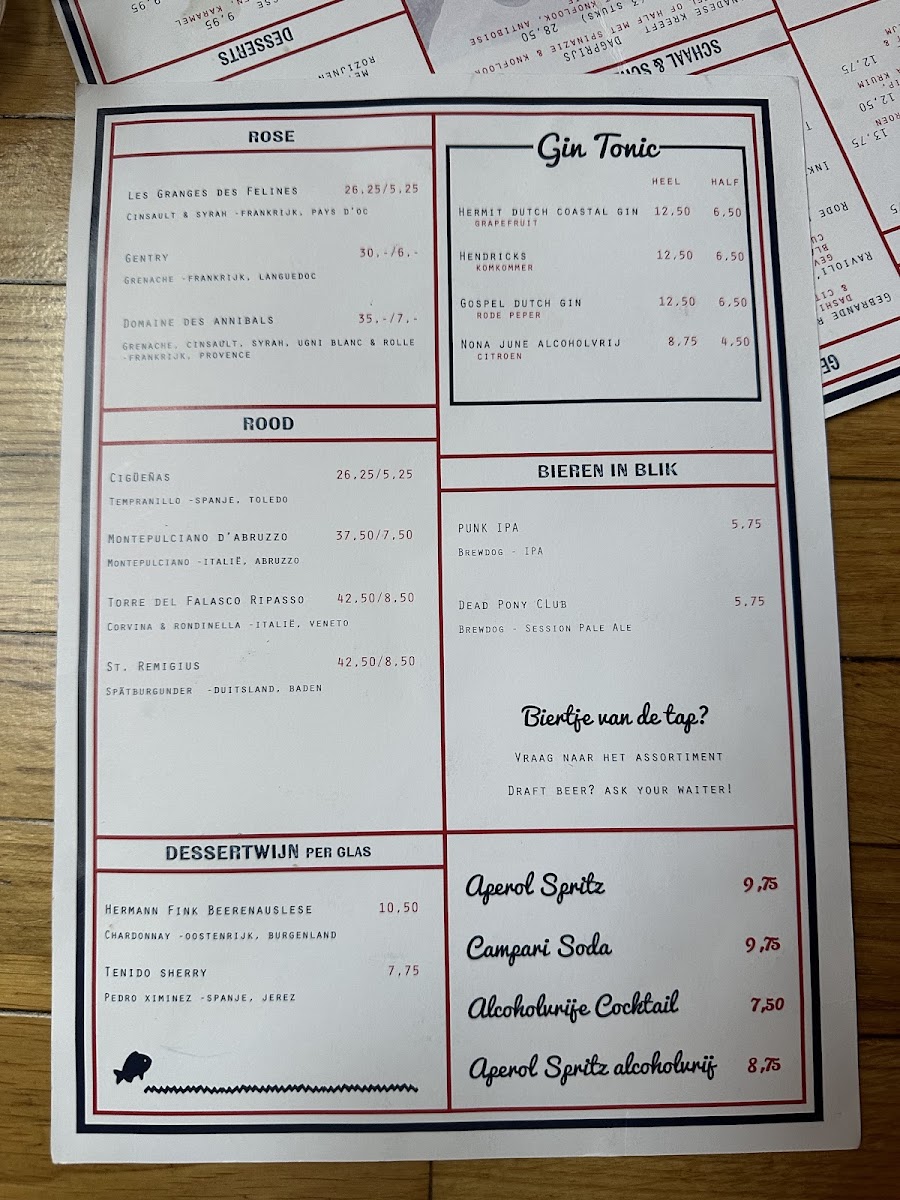 9,95
SE
EN, KARAMEL
9,95
DESSERTS
ME
ROZIJNEN
28,50
DAGPRIJS
SCHAAL &
12,75
KRUIM
12,50
13,75
INK
RODE
RAVIOLI
GEBRANDE
DASHI
& CIT
ROSE
LES GRANGES DES FELINES 26,25/5,25
CINSAULT & SYRAH -FRANKRIJK, PAYS D'OC
GENTRY 30,-/6,-
GRENACHE -FRANKRIJK, LANGUEDOC
DOMAINE DES ANNIBALS 35,-/7,-
GRENACHE, CINSAULT, SYRAH, UGNI BLANC & ROLLE
-FRANKRIJK, PROVENCE
ROOD
CIGÜEÑAS 26,25/5,25
TEMPRANILLO -SPANJE, TOLEDO
MONTEPULCIANO D'ABRUZZO 37,50/7,50
MONTEPULCIANO -ITALIË, ABRUZZO
TORRE DEL FALASCO RIPASSO 42,50/8,50
CORVINA & RONDINELLA -ITALIË, VENETO
ST. REMIGIUS 42,50/8,50
SPÄTBURGUNDER -DUITSLAND, BADEN
DESSERTWIJN PER GLAS
HERMANN FINK BEERENAUSLESE 10,50
CHARDONNAY -OOSTENRIJK, BURGENLAND
TENIDO SHERRY 7,75
PEDRO XIMINEZ -SPANJE, JEREZ
Gin Tonic
HEEL HALF
HERMIT DUTCH COASTAL GIN 12,50 6,50
GRAPEFRUIT
HENDRICKS 12,50 6,50
KOMKOMMER
GOSPEL DUTCH GIN 12,50 6,50
RODE PEPER
NONA JUNE ALCOHOLVRIJ 8,75 4,50
CITROEN
BIEREN IN BLIK
PUNK IPA 5,75
BREWDOG - IPA
DEAD PONY CLUB 5,75
BREWDOG - SESSION PALE ALE
Biertje van de tap?
VRAAG NAAR HET ASSORTIMENT
DRAFT BEER? ASK YOUR WAITER!
Aperol Spritz 9,75
Campari Soda 9,75
Alcoholvrije Cocktail 7,50
Aperol Spritz alcoholvrij 8,75